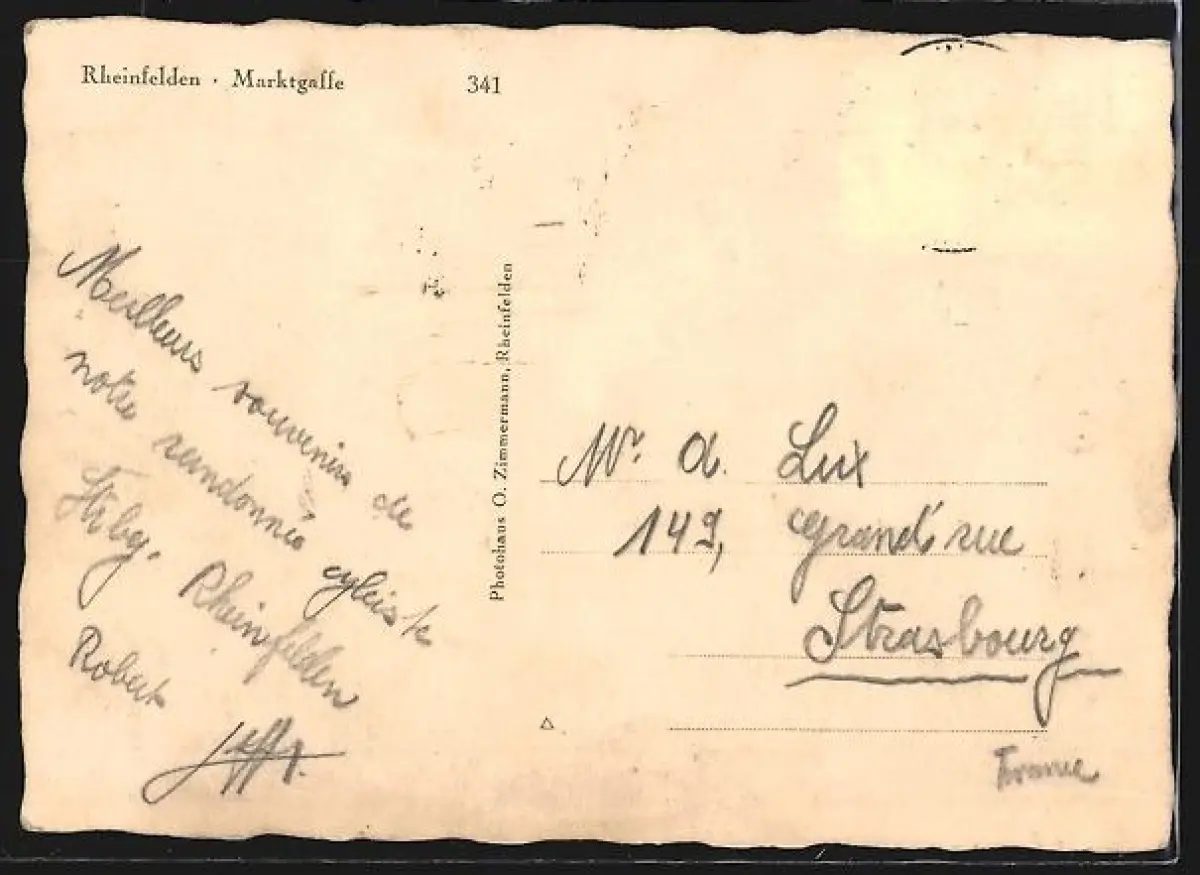 Rheinfelden · Marktgasse 341
Meilleurs souvenirs de
notre randonnée cycliste
Strbg. Rheinfelden
Robert
Photohaus O. Zimmermann, Rheinfelden
Mr. A. Lux
149, Grand'rue
Strasbourg
France